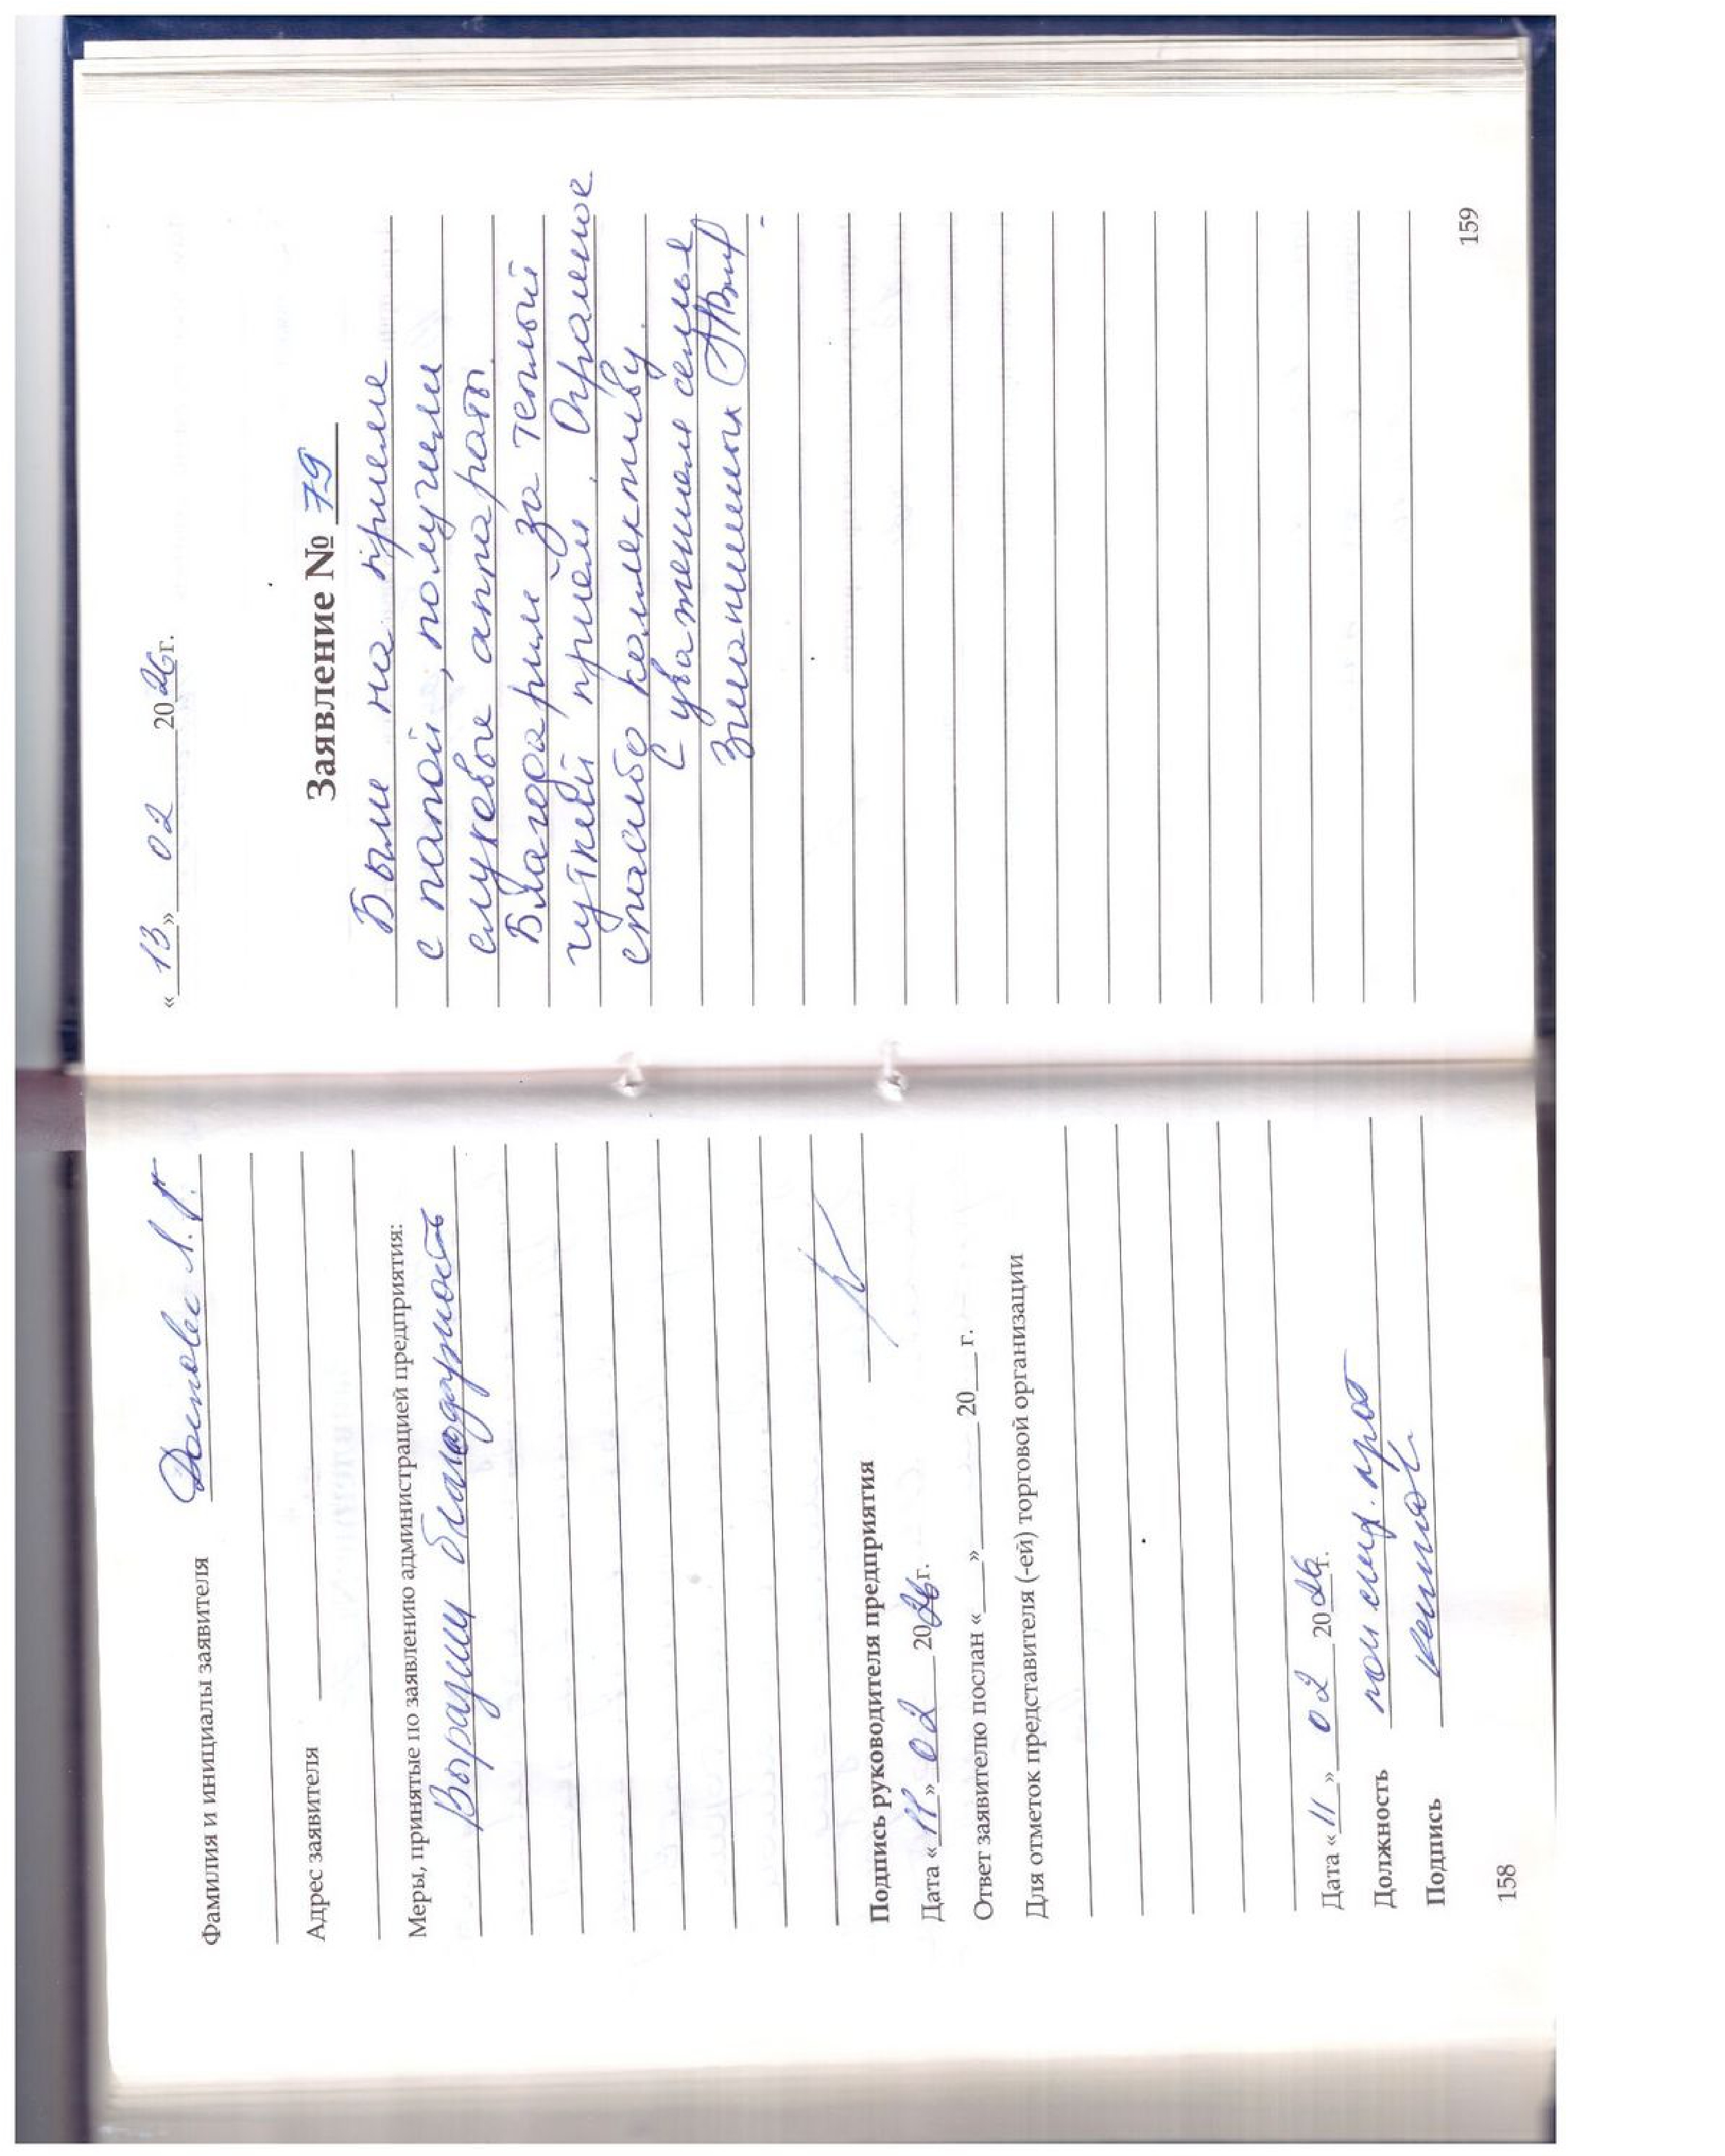 Фамилия и инициалы заявителя
Адрес заявителя
Меры, принятые по заявлению администрацией предприятия:
Выразили благодарность
Подпись руководителя предприятия
Дата «11» 02 2026 г.
Ответ заявителю послан «___» ______ 20__ г.
Для отметок представителя (-ей) торговой организации
Дата «11» 02 2026 г.
Должность
Подпись
158
«13» 02 2026 г.
Заявление № 79
Были на приеме
с папой, получили
слуховые аппараты.
Благодарим за теплый
чуткий прием. Огромное
спасибо коллективу.
С уважением семья
159